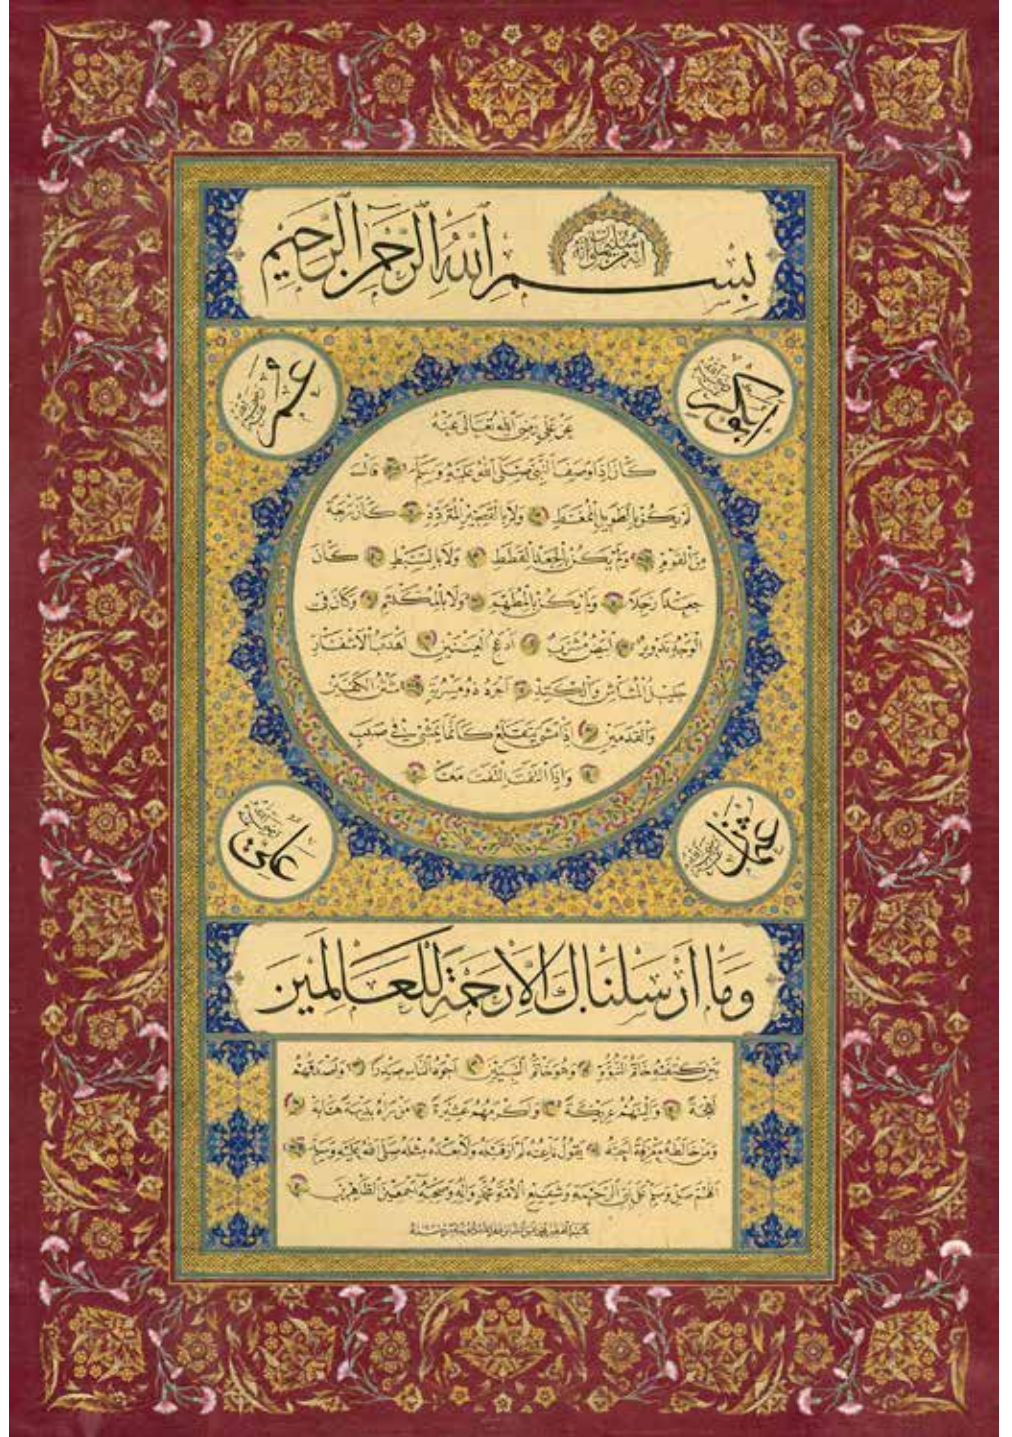 بسم الله الرحمن الرحيم
إنه من سليمان وإنه
عمر
عن علي رضي الله تعالى عنه
كان إذا وصف النبي صلى الله عليه وسلم قال
لم يكن بالطويل الممغط ولا بالقصير المتردد كان ربعة
من القوم ولم يكن بالجعد القطط ولا بالسبط كان
جعدا رجلا ولم يكن بالمطهم ولا بالمكلثم وكان في
الوجه تدوير أبيض مشرب أدعج العينين أهدب الأشفار
جليل المشاش والكتد أجرد ذو مسربة شثن الكفين
والقدمين إذا مشى يتقلع كأنما يمشي في صبب
وإذا التفت التفت معا
عثمان
علي
وما أرسلناك إلا رحمة للعالمين
بين كتفيه خاتم النبوة وهو خاتم النبيين أجود الناس صدرا وأصدقهم
لهجة وألينهم عريكة وأكرمهم عشيرة من رآه بديهة هابه
ومن خالطه معرفة أحبه يقول ناعته لم أر قبله ولا بعده مثله صلى الله عليه وسلم
اللهم صل وسلم على نبي الرحمة وشفيع الأمة محمد وآله وصحبه أجمعين الطاهرين